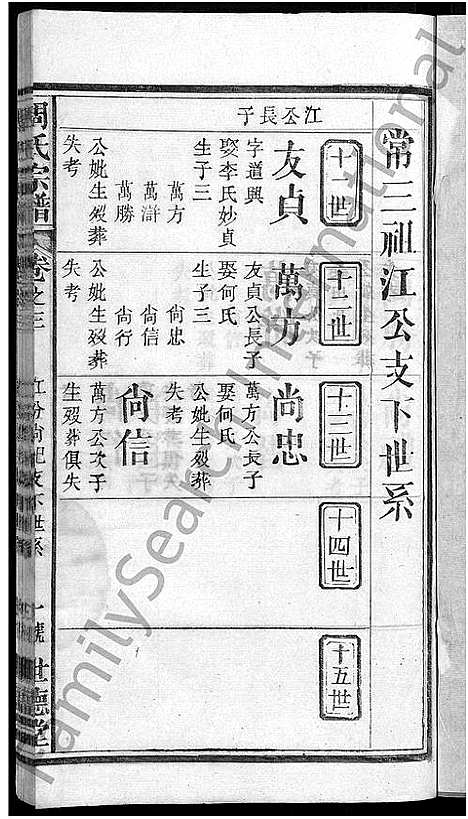 常三祖江公支下世系
十一世
江公長子
友貞
字道興
娶李氏妙貞
生子三
萬方
萬滸
萬勝
公妣生歿葬
失考
十二世
萬方
友貞公長子
娶何氏
生子三
尙忠
尙信
尙行
公妣生歿葬
失考
十三世
尚忠
萬方公長子
娶何氏
公妣生歿葬
失考
尙信
萬方公次子
生歿葬俱失
十四世
十五世
周氏宗譜
卷之三
支下世系
一號
世德堂
FamilySearch International